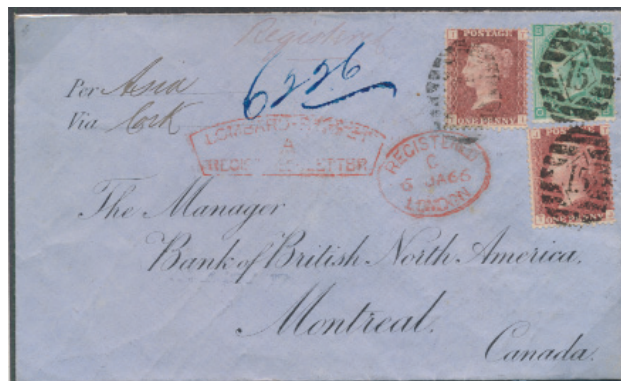 Registered
Per Asia
Via Cork
6226
POSTAGE
ONE PENNY
LOMBARD-STREET
A
REGISTERED LETTER
REGISTERED
C
6 JA 66
LONDON
15
ONE PENNY
15
The Manager
Bank of British North America,
Montreal.
Canada.